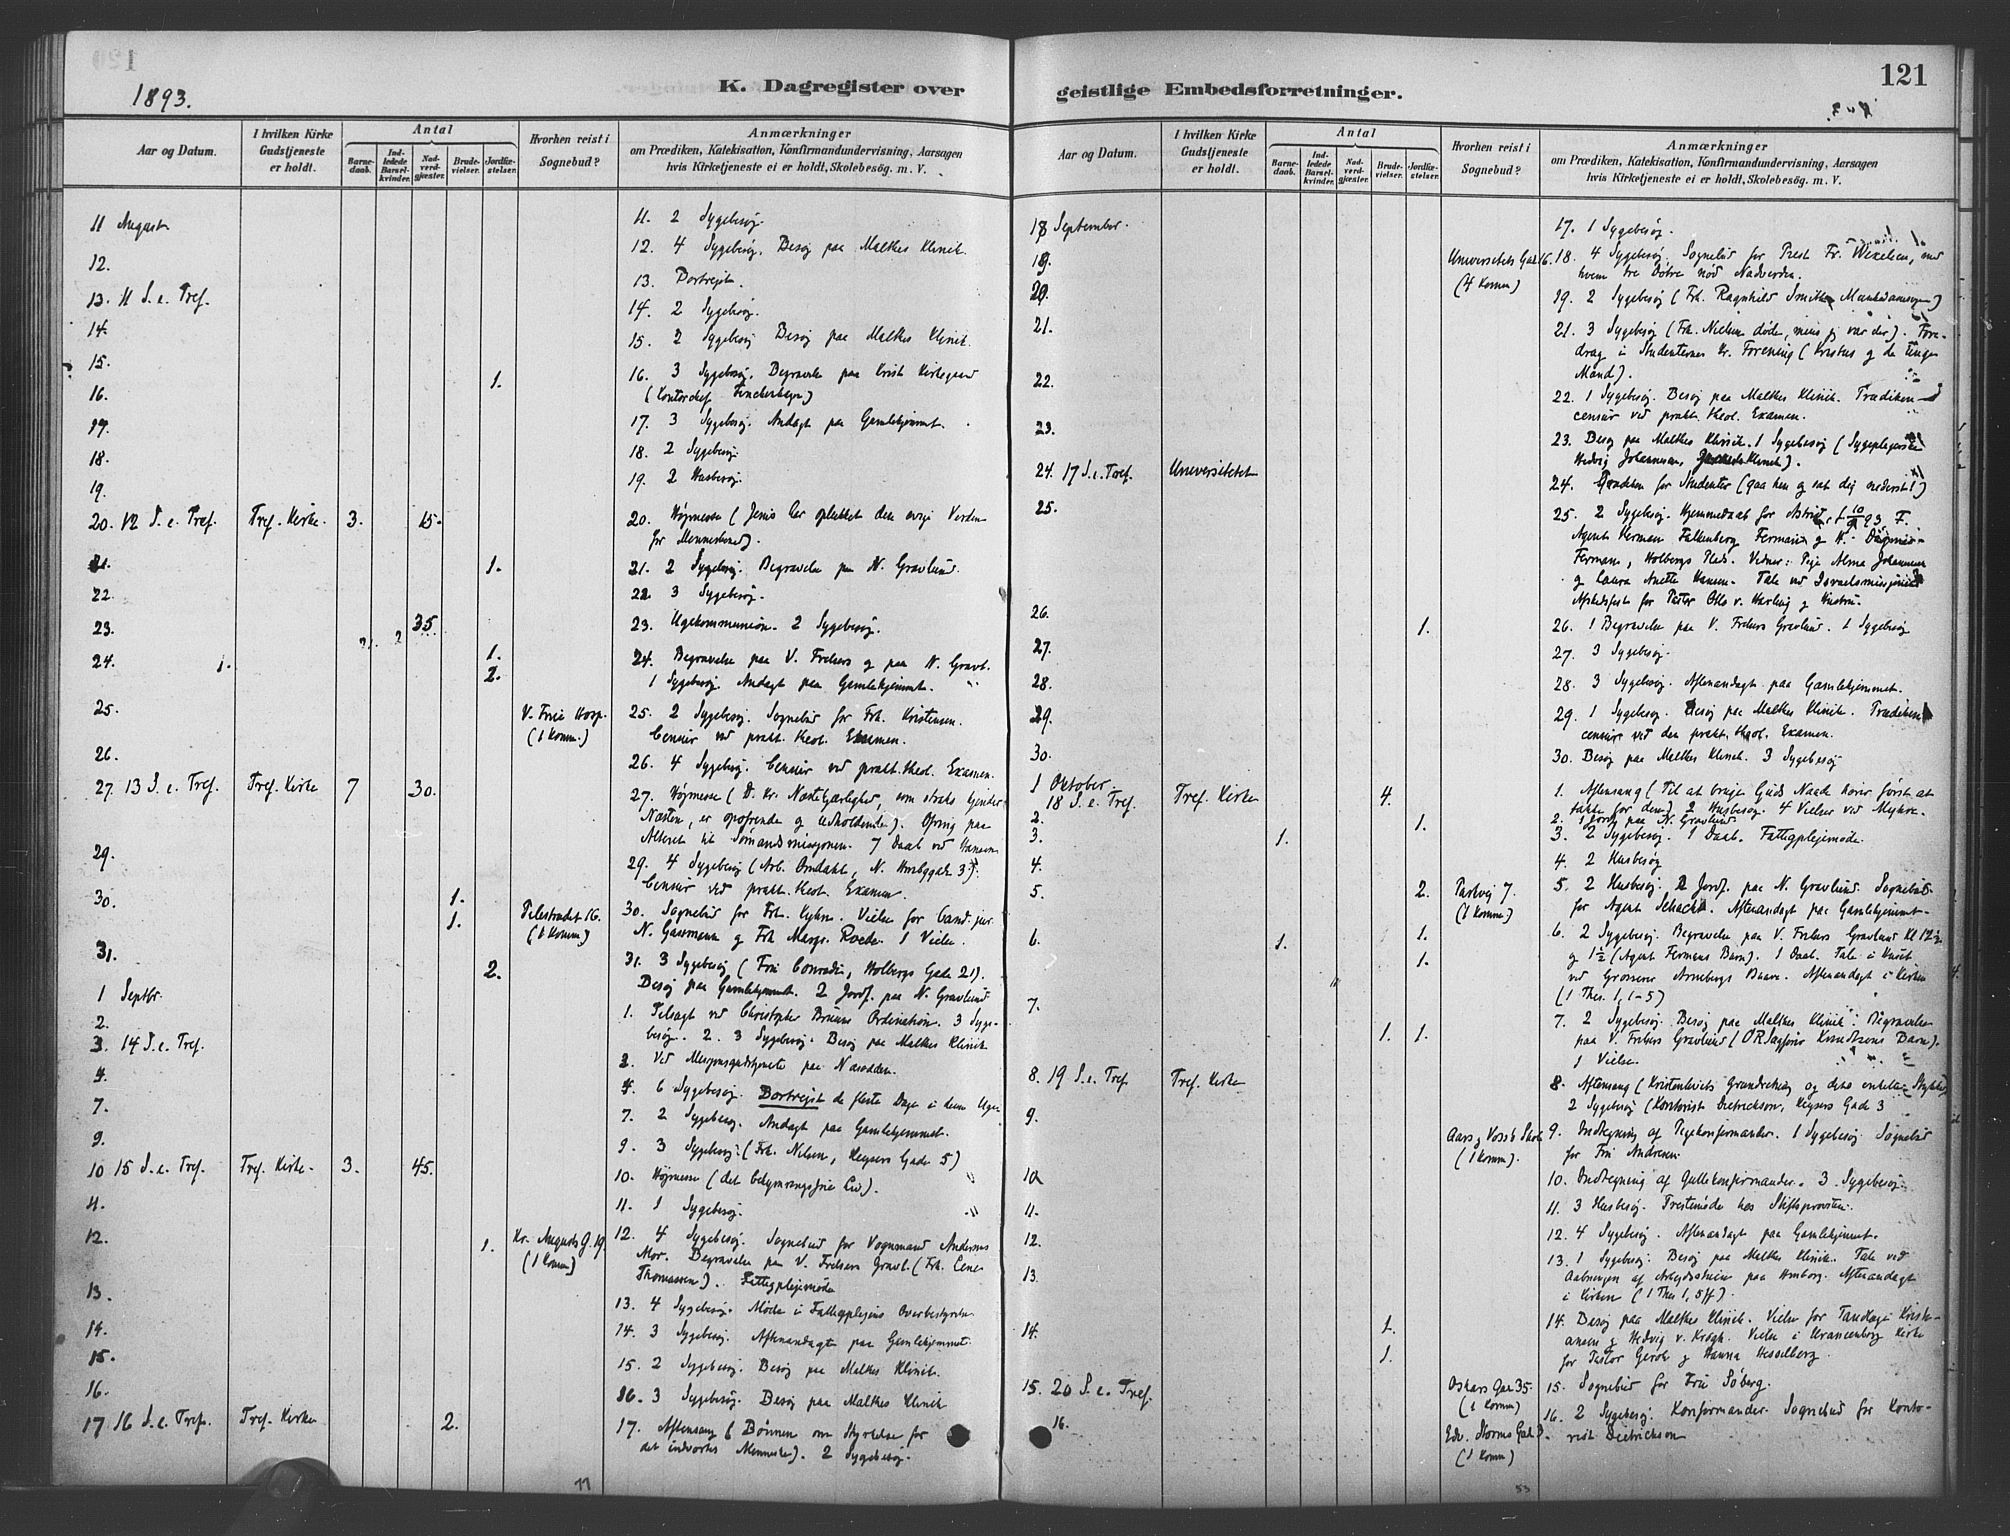 1893.
K. Dagregister over
Aar og Datum.
I hvilken Kirke
Gudstjeneste
er holdt.
Antal
Barne-
daab.
Ind-
ledede
Barsel-
kvinder.
Nad-
verd-
gjæster.
Brude-
vielser.
Jordfæ-
stelser.
Hvorhen reist i
Sognebud?
Anmærkninger
om Prædiken, Katekisation, Konfirmandundervisning, Aarsagen
hvis Kirketjeneste ei er holdt, Skolebesøg. m. V.
11 August 11. 2 Sygebesøg.
12. 12. 4 Sygebesøg. Besøg paa Malthes Klinik.
13. 11 S. e. Tref. 13. Bortrejst.
14. 14. 2 Sygebesøg.
15. 15. 2 Sygebesøg Besøg paa Malthes Klinik.
16. 1. 16. 3 Sygebesøg. Begravelse paa Krist Kirkegaard
(Kontorchef
17. 17. 3 Sygebesøg. Andagt paa Gamlehjemmet.
18. 18. 2 Sygebesøg.
19. 19. 2 Husbesøg.
20. 12 S. e. Tref. Tref. Kirke. 3. 15. 20. Højmesse (Jesus har oplukket den evige Verden
for Menneskened).
21. 1. 21. 2 Sygebesøg. Begravelse paa N. Gravlund.
22. 22. 3 Sygebesøg.
23. 35. 23. Ugekommunion. 2 Sygebesøg.
24. 1. 24. Begravelse paa V. Frelsers og paa N. Gravl.
2. 1 Sygebesøg. Andagt paa Gamlehjemmet.
25. V. Frue Hosp. 25. 2 Sygebesøg. Sognebud for Frk. Kristensen.
(1 Komm.) Censur ved prakt. theol. Examen.
26. 26. 4 Sygebesøg. Censur ved prakt. theol. Examen.
27. 13 S. e. Tref. Tref. Kirke 7 30. 27. Højmesse (D. kr. Næstekjærlighed, som straks kjender
Næsten, er opofrende og udholdende). Ofring paa
Alteret til Sømandsmissionen. 7 Daab ved Hansen
29. 29. 4 Sygebesøg (Arb. Omdahl, N.
Censur ved prakt. theol. Examen.
30. 1. Pilestrædet 16. 30. Sognebud for Frk. Vielse for Cand. jur.
1. (1 Komm) N. Gassmann og Frk Margr. Roede. 1 Vielse.
31. 2. 31. 3 Sygebesøg (Fru Conradi, Holbergs Gade 21).
Besøg paa Gamlehjemmet. 2 Jordf. paa N. Gravlund
1 Septbr. 1. Tilsagt ved Christopher Bruuns Ordination. 3 Syge-
2. besøg. 2. 3 Sygebesøg. Besøg paa Malthes Klinik
3. 14 S. e. Tref. 3. Ved Missionsgudstjeneste paa Næsodden.
4. 4. 6 Sygebesøg. Bortrejst de fleste Dage i denne Uge.
7. 7. 2 Sygebesøg. Andagt paa Gamlehjemmet.
9. 9. 3 Sygebesøg. (Frk. Nilsen, Keysers Gade 5)
10 15 S. e. Tref. Tref. Kirke. 3. 45. 10. Højmesse (det bekymringsfrie Liv).
11. 11. 1 Sygebesøg.
12. 1. Kr. Augusts G. 19. 12. 4 Sygebesøg. Sognebud for Vognmand Andersens
(1 Komm) Mor. Begravelse paa V. Frelsers Gravl. (Frk. Lene
Thomassen). Fattigplejemøde
13. 13. 4 Sygebesøg. Møde i Fattigplejens Overbestyrelse
14. 14. 3 Sygebesøg. Aftenandagt paa Gamlehjemmet.
15. 15. 2 Sygebesøg. Besøg paa Malthes Klinik.
16. 16. 3 Sygebesøg. Besøg paa Malthes Klinik
17 16 S. e. Tref. Tref. Kirke 2. 17. Aftensang (Bønnen om Styrkelse for
det indvortes Menneske). 2 Sygebesøg.
geistlige Embedsforretninger.
121
Aar og Datum.
I hvilken Kirke
Gudstjeneste
er holdt.
Antal
Barne-
daab.
Ind-
ledede
Barsel-
kvinder.
Nad-
verd-
gjæster.
Brude-
vielser.
Jordfæ-
stelser.
Hvorhen reist i
Sognebud?
Anmærkninger
om Prædiken, Katekisation, Konfirmandundervisning, Aarsagen
hvis Kirketjeneste ei er holdt, Skolebesøg. m. V.
18 September. 17. 1 Sygebesøg.
19. Universitets Gad. 16. 18. 4 Sygebesøg. Sognebud for Prest Fr. Wexelsen, med
(4 Komm) hvem tre Døtre nød Nadverden.
20. 19. 2 Sygebesøg (Frk. Ragnhild Smith, Munkedamsvejen)
21. 21. 3 Sygebesøg (Frk. Nielsen døde, mens jeg var der). Fore-
drag i Studenternes Kr. Forening (Kristus og de unge
Mænd).
22. 22. 1 Sygebesøg. Besøg paa Malthes Klinik. Prædiken-
censur ved prakt. theol. Examen.
23. 23. Besøg paa Malthes Klinik. 1 Sygebesøg (Sygeplejerske
Hedvig Johannesen,
24. 17 S. e. Tref. Universitetet 24. Prædiken for Studenter (gaa hen og sæt dig nederst!)
25. 25. 2 Sygebesøg. Hjemmedaab for Astrid, f. 10/9 93. F.
Agent Herman Falkenberg Fermann og H.
Fermann, Holbergs Plads. Vidner: Pige Alma Johannesen
og Laura Anette Hansen. Tale ved Israelsmissionens
Afskedsfest for Pastor Otto v. Harling og Hustru.
26. 1. 26. 1 Begravelse paa V. Frelsers Gravlund. 1 Sygebesøg
27. 27. 3 Sygebesøg.
28. 28. 3 Sygebesøg. Aftenandagt paa Gamlehjemmet.
29. 29. 1 Sygebesøg. Besøg paa Malthes Klinik. Prædiken
censur ved den prakt. theol. Examen.
30. 30. Besøg paa Malthes Klinik. 3 Sygebesøg
1 Oktober
18 S. e. Tref. Tref. Kirke 4. 1. Aftensang (Til at bruge Guds Naade hører først at
takke for den). 2 Husbesøg. 4 Vielser ved
2. 1. 2. 1 Jordf. paa N. Gravlund
3. 1. 3. 2 Sygebesøg. 1 Daab. Fattigplejemøde.
4. 4. 2 Husbesøg
5. 2. Parkvej 7. 5. 2 Husbesøg. 2 Jordf. paa N. Gravlund. Sognebud
(1 Komm) for Agent Schacht. Aftenandagt paa Gamlehjemmet.
6. 1. 1. 6. 2 Sygebesøg. Begravelse paa V. Frelsers Gravlund Kl 12½
1. og 1½ (Agent Fermans Barn). 1 Daab. Tale i Huset
ved Grosserer Arnebergs Baare. Aftenandagt i Kirken
(1 Thes. 1, 1-5)
7. 1. 1. 7. 2 Sygebesøg. Besøg paa Malthes Klinik. Begravelse
paa V. Frelsers Gravlund (ORSagfører Knudtzons Barn).
1 Vielse.
8. 19 S. e. Tref Tref. Kirke 8. Aftensang (Kristenlivets Grundretning og dets enkelte Stykker)
2 Sygebesøg (Kontorist Dietrichson, Keysers Gade 3
9. Aars og Voss's Skole 9. Indtegning af Pigekonfirmander. 1 Sygebesøg. Sognebud
(1 Komm). for Fru Andresen
10 10. Indtegning af Guttekonfirmander. 3 Sygebesøg
11. 11. 3 Husbesøg. Prestemøde hos Stiftsprovsten.
12. 12. 4 Sygebesøg. Aftenandagt paa Gamlehjemmet.
13. 13. 1 Sygebesøg. Besøg paa Malthes Klinik. Tale ved
Aabningen af Arbejdsstuen paa Homborg. Aftenandagt
i Kirken (1 Thes 1, 5ff).
14. 1. 14. Besøg paa Malthes Klinik. Vielse for Tandlæge Kristi-
ansen og Hedvig v. Krogh. Vielse i Uranienborg Kirke
1. for Pastor Gerok og Hanna Hesselberg.
15. 20 S. e. Tref. Oskars Gad 35. 15. Sognebud for Fru Søberg.
(1 Komm)
16. Edv. Storms Gad. 3. 16. 2 Sygebesøg. Konfirmander. Sognebud for Konto-
(1 Komm) rist Dietrichson